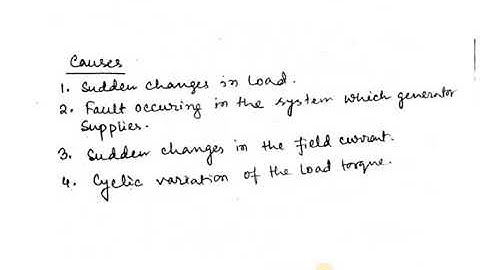 Causes
1. Sudden changes in load.
2. Fault occuring in the system which generator
supplies.
3. Sudden changes in the field current.
4. Cyclic variation of the load torque.